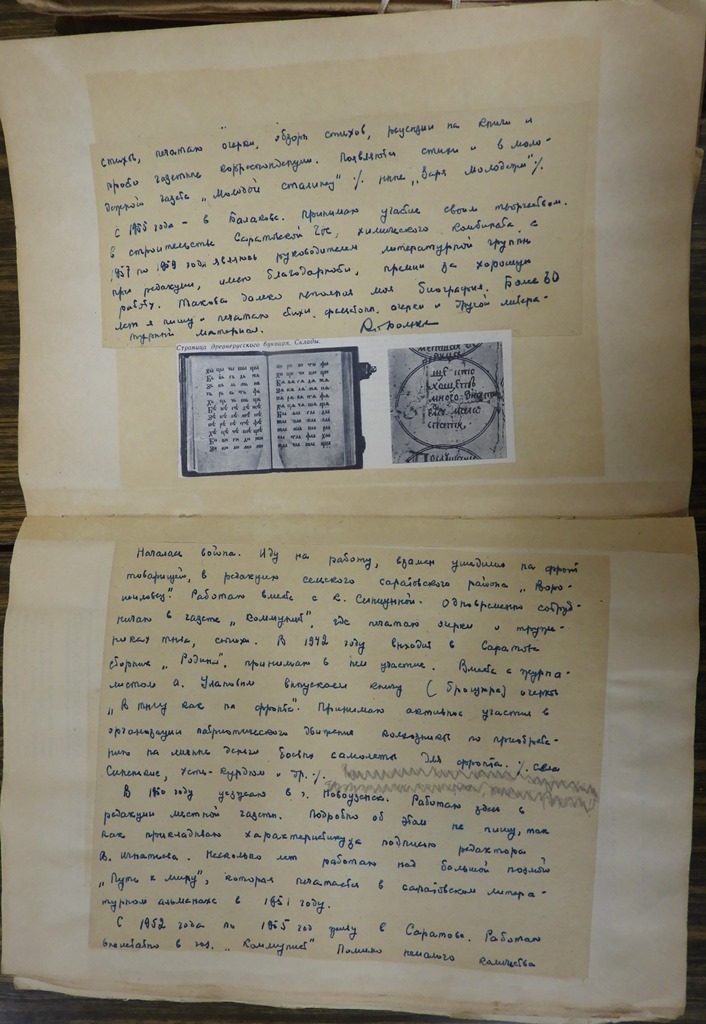 стихов, печатаю очерки, обзоры стихов, рецензии на книги и
прочо газетные корреспонденции. Появляются стихи и в моло-
дежной газете „Молодой сталинец" /. ныне „Заря молодежи"/.
С 1955 года – в Балакове. Принимаю участие своим творчеством
в строительстве Саратовской Гэс, химического комбината. С
1957 по 1959 годы являюсь руководителем литературной группы
при редакции, имею благодарности, премии за хорошую
работу. Такова далеко неполная моя биография. Более 30
лет я пишу и печатаю стихи, фельетоны, очерки и другой литера-
турный материал.
Страница древнерусского букваря. Склады.
ще кто
хощетъ
много
мало
Началась война. Иду на работу, взамен ушедших на фронт
товарищей, в редакцию сельского саратовского района „Воро-
шиловец". Работаю вместе с В. Синицыной. Одновременно сотруд-
ничаю в газете „Коммунист", где печатаю очерки о труже-
никах тыла, стихи. В 1942 году выходит в Саратове
сборник „Родина", принимаю в нем участие. Вместе с журна-
листом А. выпускаем книгу (брошюра) очерков
„В тылу как на фронте". Принимаю активное участие в
организации патриотического движения колхозников по приобрете-
нию на личные деньги боевых самолетов для фронта. /. села
Синенькие, Усть-Курдюм и др. /.
В 1950 году уезжаю в г. Новоузенск. Работаю здесь в
редакции местной газеты. Подробно об этом не пишу, так
как прикладываю характеристику за подписью редактора
В. Игнатьева. Несколько лет работаю над большой поэмой
„Путь к миру", которая печатается в саратовском литера-
турном альманахе в 1951 году.
С 1952 года по 1955 год живу в Саратове. Работаю
внештатно в газ. „Коммунист" Помимо немалого количества